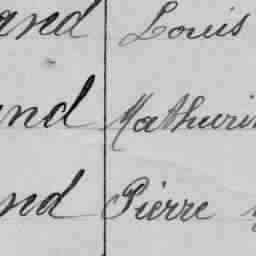 and Louis
and Mathurin
and Pierre